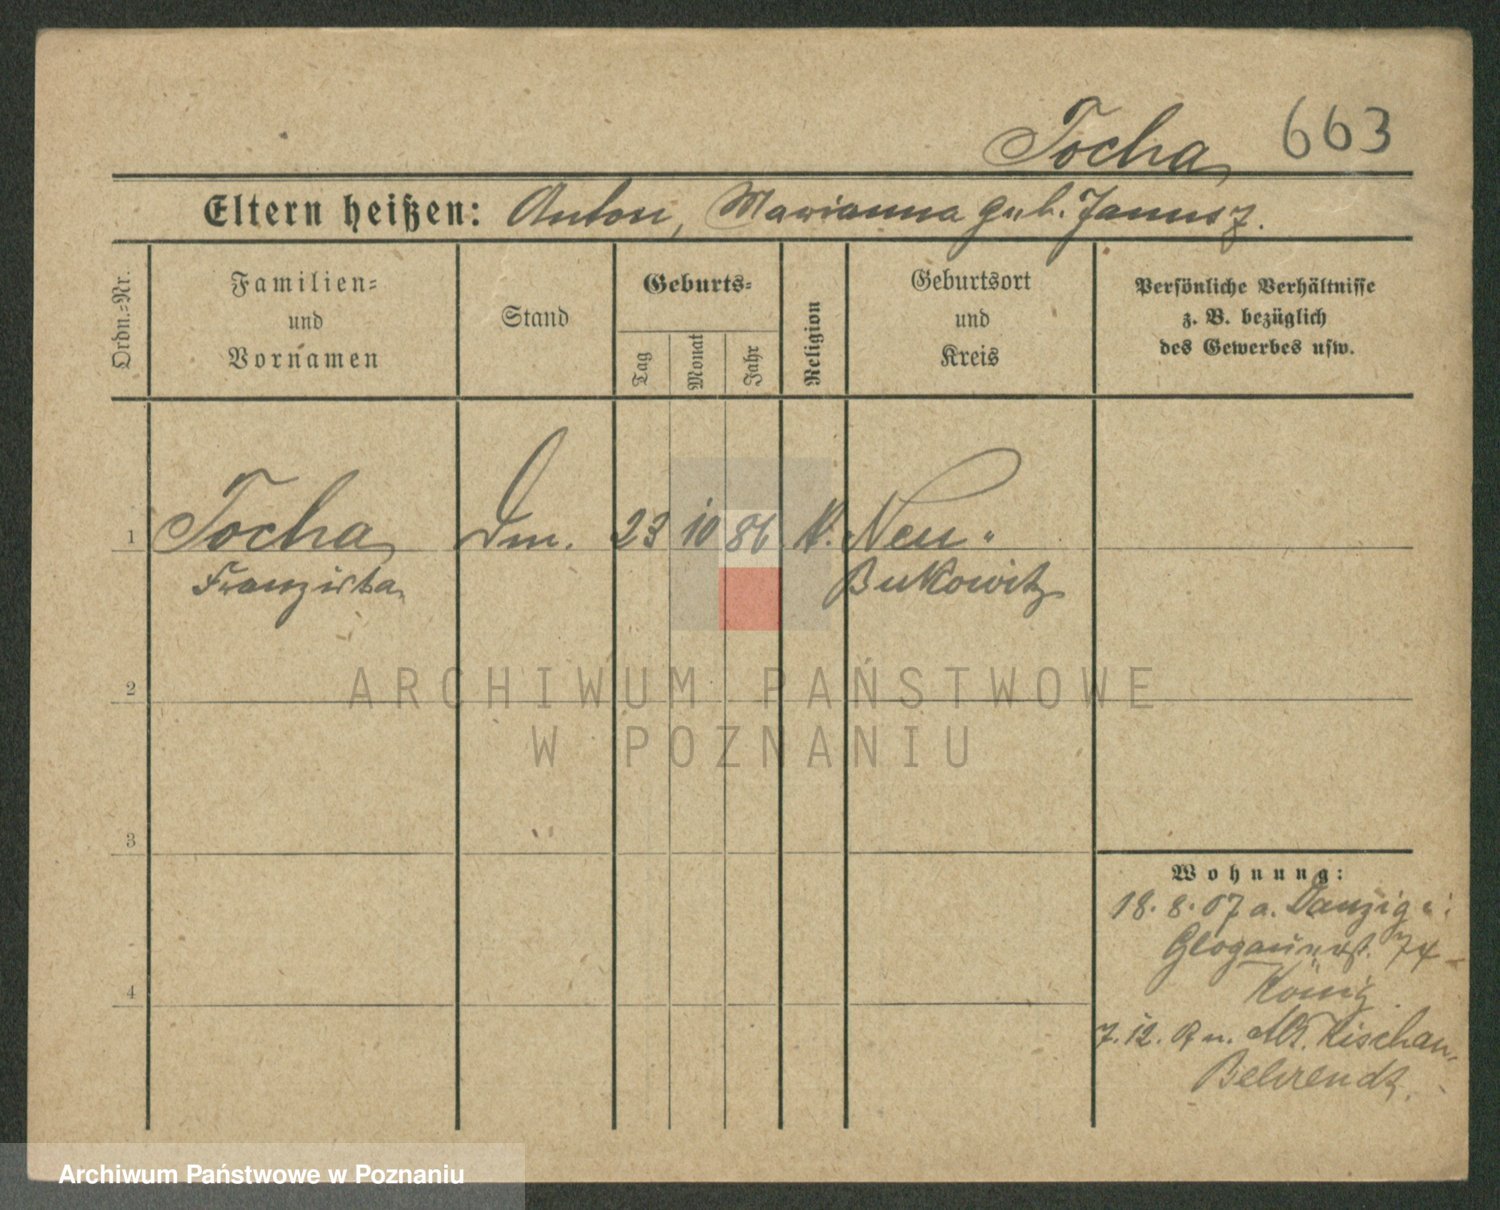 Tocha 663
Eltern heißen: Anton, Marianna geb. Janusz.
Ordn.-Nr.
Familien-
und
Vornamen
Stand
Geburts-
Tag
Monat
Jahr
Religion
Geburtsort
und
Kreis
Persönliche Verhältnisse
z. B. bezüglich
des Gewerbes usw.
1 Tocha Dm. 23 10 86 K. Neu-
Franziska Bukowitz
2
ARCHIWUM PAŃSTWOWE
W POZNANIU
3
Wohnung:
18. 8. 07 a. Danzig
Glogauerst. 74
König
4
7. 12. 07 n. Alt Kischau,
Behrendt.
Archiwum Państwowe w Poznaniu